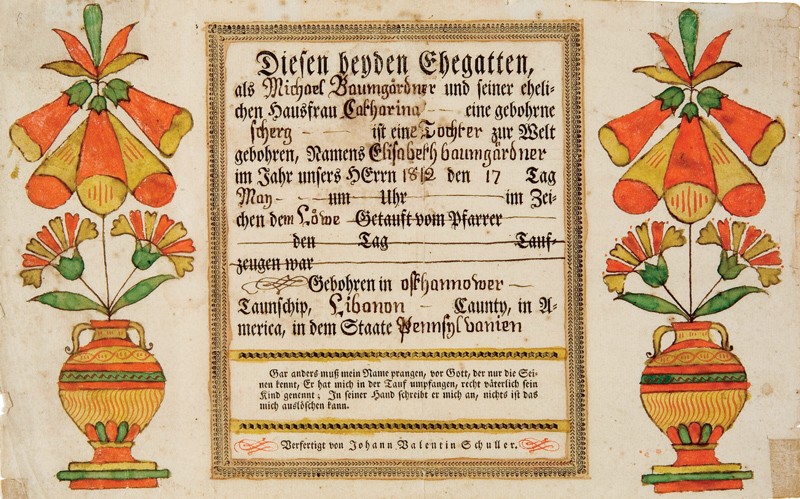 Diesen beyden Ehegatten,
als Michael Baumgärdner und seiner eheli-
chen Hausfrau Catharina eine gebohrne
scherg ist eine Tochter zur Welt
gebohren, Namens Elisabeth baumgärdner
im Jahr unsers HErrn 1812 den 17 Tag
May um Uhr im Zei-
chen dem Löwe Getauft vom Pfarrer
den Tag Tauf-
zeugen war
Gebohren in osthannower
Taunschip, Libanon Caunty, in A-
merica, in dem Staate Pennsylvanien
Gar anders muß mein Name prangen, vor Gott, der nur die Sei-
nen kennt, Er hat mich in der Tauf umpfangen, recht väterlich sein
Kind genennt; In seiner Hand schreibt er mich an, nichts ist das
mich auslöschen kann.
Verfertigt von Johann Valentin Schuller.